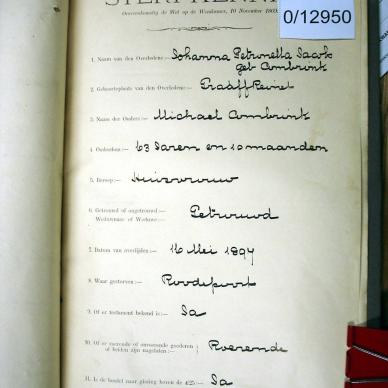 STERFKENNIS
Overeenkomstig de Wet op de Weeskamer, 10 November 1869
0/12950
1. Naam van den Overledene:— Johanna Petronella Swik
geb Ambrink
2. Geboorteplaats van den Overledene:— Graaff Reinet
3. Namen der Ouders:— Michael Ambrink
4. Ouderdom:— 63 Jaren en 10 maanden
5. Beroep:— Huisvrouw
6. Getrouwd of ongetrouwd:—
Weduwnaar of Weduwe:— Getrouwd
7. Datum van overlijden:— 16 Mei 1897
8. Waar gestorven:— Roodepoort
9. Of er testament bekend is:— Ja
10. Of er roerende of onroerende goederen
of beiden zijn nagelaten:— Roerende
11. Is de boedel naar gissing boven de Ja